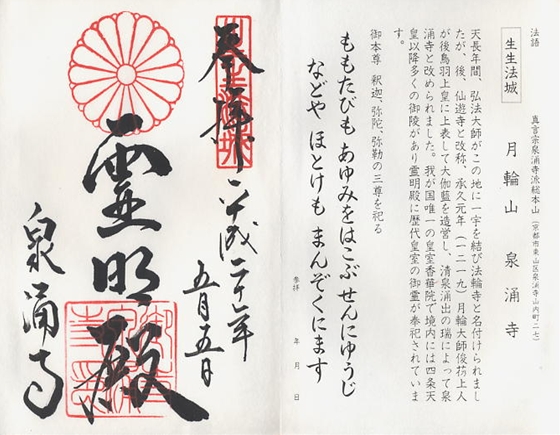 法語
生生法城
真言宗泉涌寺派総本山(京都市東山区泉涌寺山内町二七)
月輪山 泉涌寺
天長年間、弘法大師がこの地に一宇を結び法輪寺と名付けられまし
たが、後、仙遊寺と改称、承久元年(一二一九)月輪大師俊芿上人
が後鳥羽上皇に上表して大伽藍を造営し、清泉涌出の瑞によって泉
涌寺と改められました。我が国唯一の皇室香華院で境内には四条天
皇以降多くの御陵があり霊明殿に歴代皇室の御霊が奉祀されていま
す。
御本尊 釈迦、弥陀、弥勒の三尊を祀る
ももたびも あゆみをはこぶ せんにゅうじ
などや ほとけも まんぞくにます
参拝 年 月 日
奉拝
平成二十六年
五月五日
霊明殿
泉涌寺